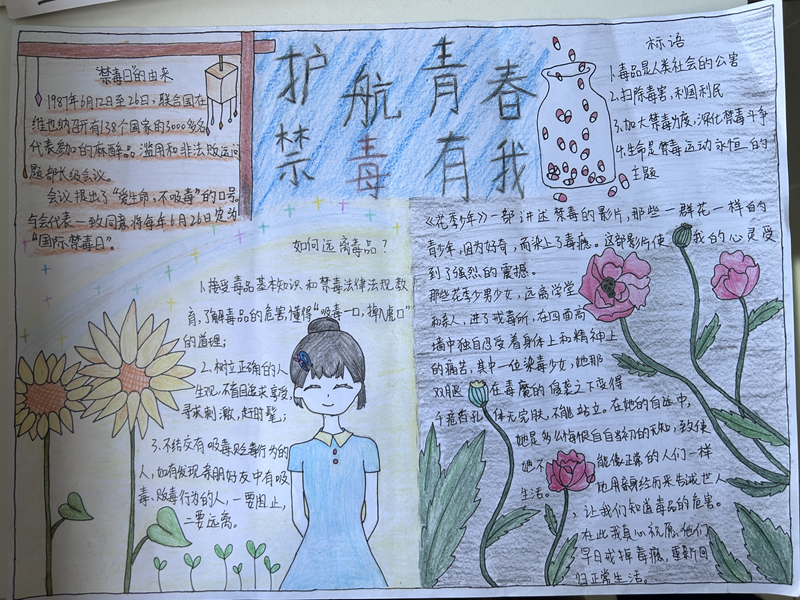 "禁毒日"的由来
1987年6月12日至26日,联合国在
维也纳召开有138个国家的3000多名
代表参加的麻醉品滥用和非法贩运问
题部长级会议。
会议提出了"爱生命,不吸毒"的口号。
与会代表一致同意将每年6月26日定为
"国际禁毒日"。
护航青春
禁毒有我
标语
1.毒品是人类社会的公害
2.扫除毒害,利国利民
3.加大禁毒力度,深化禁毒斗争
4.生命是禁毒运动永恒的
主题
如何远离毒品?
1.接受毒品基本知识和禁毒法律法规教
育,了解毒品的危害,懂得"吸毒一口,掉入虎口"
的道理;
2.树立正确的人
生观,不盲目追求享受,
寻求刺激,赶时髦;
3.不结交有吸毒贩毒行为的
人,如有发现亲朋好友中有吸
毒、贩毒行为的人,一要阻止,
二要远离。
《花季少年》一部讲述禁毒的影片,那些一群花一样的
青少年,因为好奇,而染上了毒瘾。这部影片使我的心灵受
到了强烈的震撼。
那些花季少男少女,远离学堂
和亲人,进了戒毒所,在四面高
墙中独自忍受着身体上和精神上
的痛苦,其中一位染毒少女,她那
双眼在毒魔的侵袭之下变得
千疮百孔,体无完肤,不能站立。在她的自述中,
她是多么悔恨自己当初的无知,致使
她不能像正常的人们一样
生活。她用亲身经历来告诫世人
,让我们知道毒品的危害。
在此我真心祝愿他们
早日戒掉毒瘾,重新回
归正常生活。